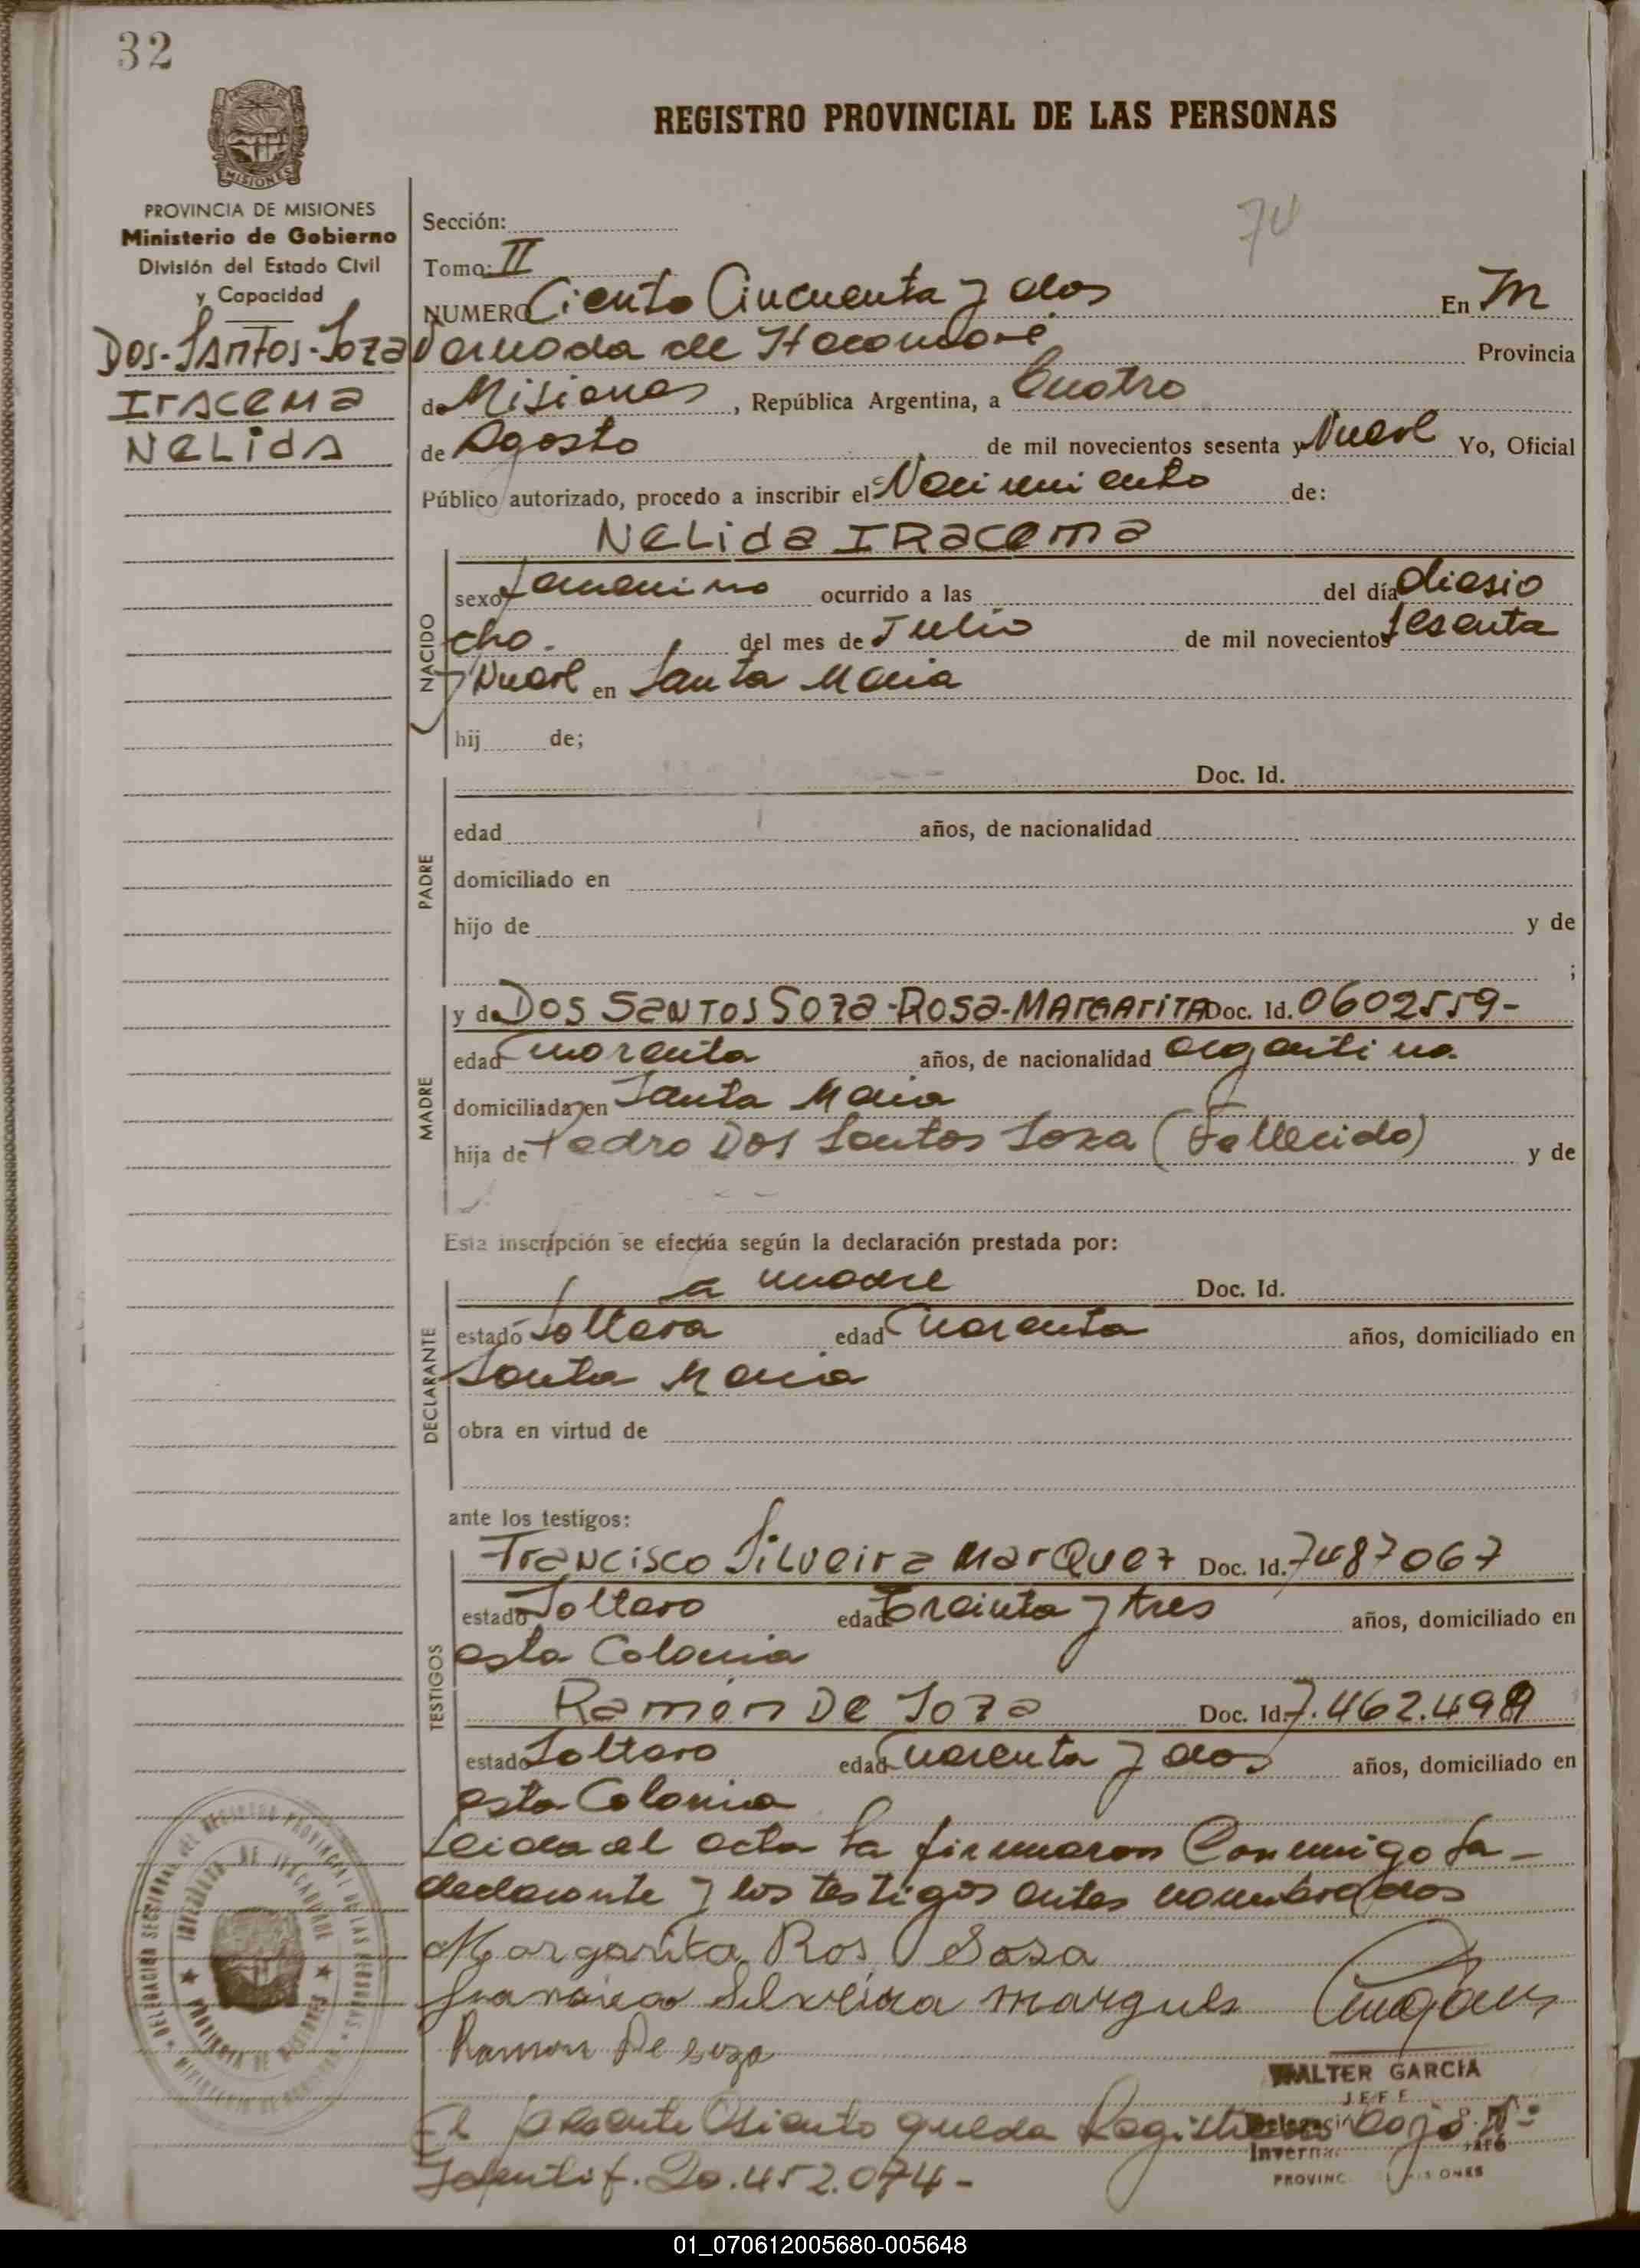 32
MISIONES
REGISTRO PROVINCIAL DE LAS PERSONAS
PROVINCIA DE MISIONES
Ministerio de Gobierno
División del Estado Civil
y Capacidad
DOS-SANTOS-SOZA
IRACEMA
NELIDA
74
Sección:
Tomo: II
NUMERO Ciento Cincuenta y dos En In
vernada de Itacaruaré Provincia
de Misiones, República Argentina, a Cuatro
de Agosto de mil novecientos sesenta y Nueve Yo, Oficial
Público autorizado, procedo a inscribir el Nacimiento de:
NELIDA IRACEMA
NACIDO
sexo femenino ocurrido a las del día diesio
cho. del mes de Julio de mil novecientos sesenta
y Nueve en Santa Maria
hij de;
PADRE
Doc. Id.
edad años, de nacionalidad
domiciliado en
hijo de y de
;
MADRE
y de DOS SANTOS SOZA-ROSA-MARGARITA Doc. Id. 0602559-
edad Cuarenta años, de nacionalidad argentina
domiciliada en Santa Maria
hija de Pedro Dos Santos Soza (Fallecido) y de
Esta inscripción se efectúa según la declaración prestada por:
DECLARANTE
La madre Doc. Id.
estado Soltera edad Cuarenta años, domiciliado en
Santa Maria
obra en virtud de
ante los testigos:
TESTIGOS
Francisco Silveira Marquez Doc. Id. 7487067
estado Soltero edad treinta y tres años, domiciliado en
esta Colonia
Ramón De Soza Doc. Id. 7.462.499
estado Soltero edad Cuarenta y dos años, domiciliado en
esta Colonia
Leida el acta la firmaron Conmigo la
declarante y los testigos antes nombrados
Margarita Ros Soza
Francisco Silveira Marques
Ramon De soza
WALTER GARCIA
JEFE
PROVINC ISIONES
El presente Asiento queda Registrado bajo N°
Identif. 20.452.074-
01_070612005680-005648